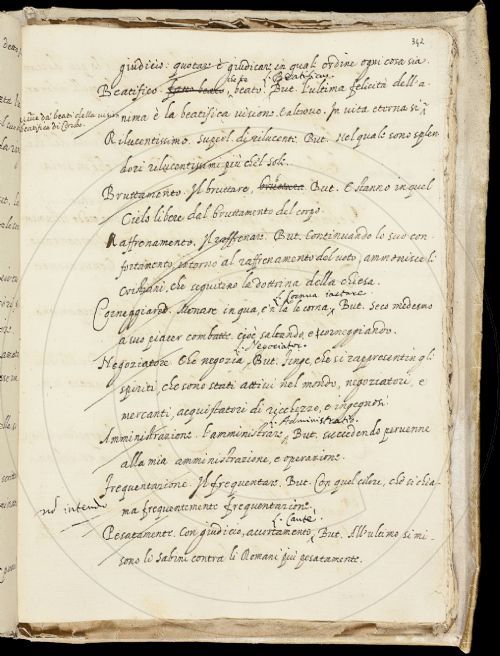 342
giudicio: quotare è giudicare in qual ordine ogni cosa sia
Beatifico. che fa beato. L. Beatificus. But. L'ultima felicità dell'a-
nima è la beatifica visione. E altrove. In vita eterna si
Rilucentissimo. Superl. di rilucente. But. Nel quale sono splen-
dori rilucentissimi più che 'l sole.
Bruttamento. Il bruttare. But. E stanno in quel
Cielo libere dal bruttamento del corpo.
Raffrenamento. Il raffrenare. But. Continuando lo suo con-
fortamento, intorno al raffrenamento del voto, ammonisce li
Cristiani, che seguitino la dottrina della chiesa.
Corneggiare. Menare in qua, e 'n là le corna. L. Cornua iactare. But. Seco medesmo
a suo piacer combatte. cioè saltando, e corneggiando.
Negoziatore. Che negozia. L. Negociator. But. Finge, che si rappresentin gli
spiriti, che sono stati attivi nel mondo, negoziatori, e
mercanti, acquistatori di ricchezze, e ingegnosi
Amministrazione. L'amministrare. L. Administratio. But. succedendo pervenne
alla mia amministrazione, e operazione.
Frequentazione. Il frequentare. But. Con quel colore, che si chia-
ma frequentemente frequentazione.
no intendo
Pesatamente. Con giudicio, accortamente. L. Caute. But. All'ultimo si mi-
sono li Sabini contra li Romani più pesatamente.